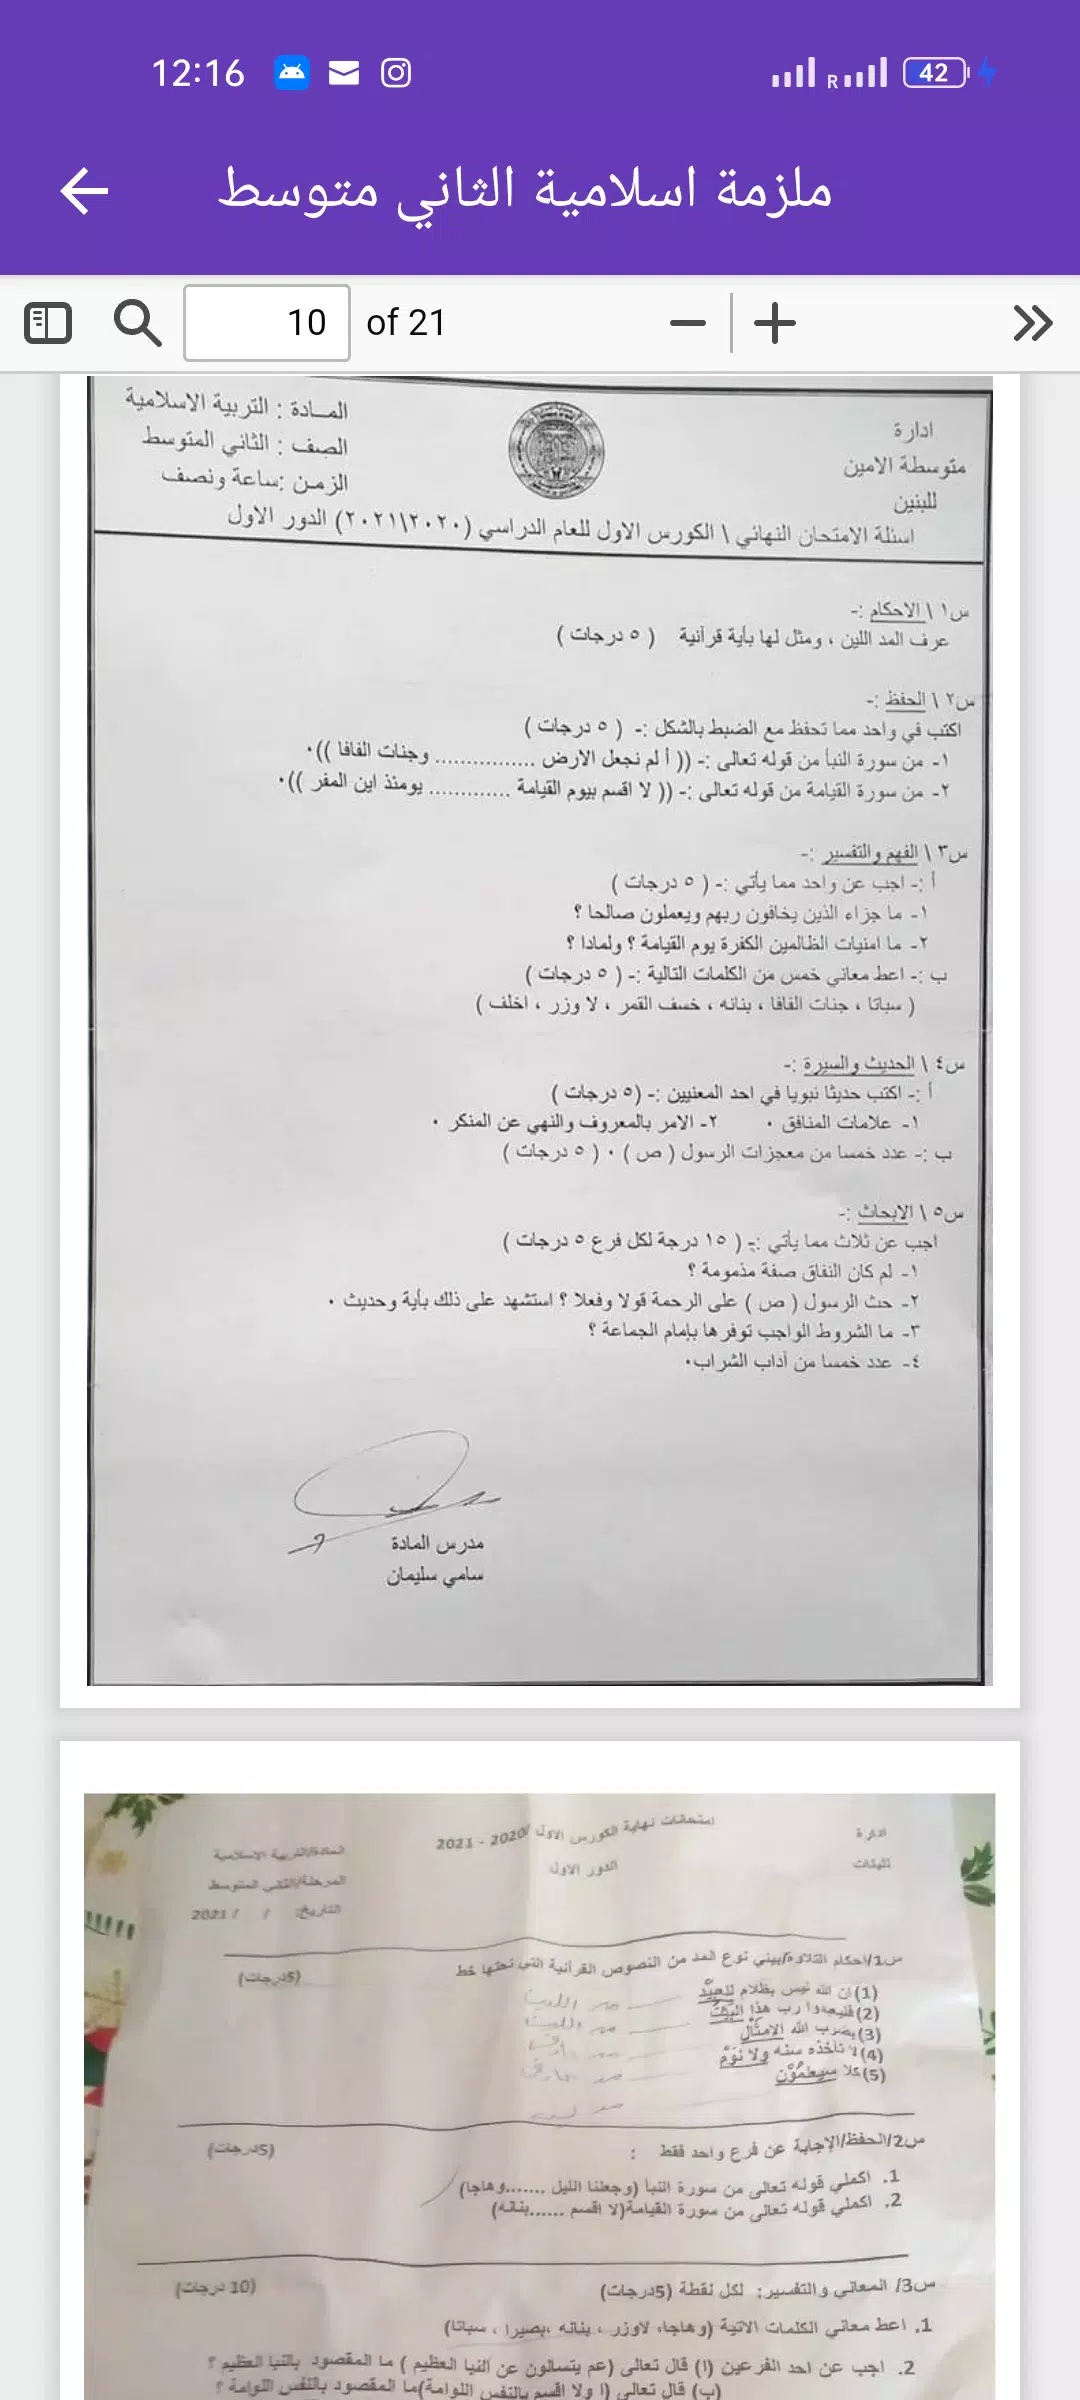 12:16
42
ملزمة اسلامية الثاني متوسط
10 of 21
ادارة
متوسطة الامين
للبنين
المادة : التربية الاسلامية
الصف : الثاني المتوسط
الزمن :ساعة ونصف
اسئلة الامتحان النهائي \ الكورس الاول للعام الدراسي (٢٠٢٠\٢٠٢١) الدور الاول
س١ \ الاحكام :-
عرف المد اللين ، ومثل لها بأية قرآنية ( ٥ درجات )
س٢ \ الحفظ :-
اكتب في واحد مما تحفظ مع الضبط بالشكل :- ( ٥ درجات )
١- من سورة النبأ من قوله تعالى :- (( أ لم نجعل الارض ................ وجنات الفافا ))٠
٢- من سورة القيامة من قوله تعالى :- (( لا اقسم بيوم القيامة ............. يومئذ اين المفر ))٠
س٣ \ الفهم والتفسير :-
أ :- اجب عن واحد مما يأتي :- ( ٥ درجات )
١- ما جزاء الذين يخافون ربهم ويعملون صالحا ؟
٢- ما امنيات الظالمين الكفرة يوم القيامة ؟ ولماذا ؟
ب :- اعط معاني خمس من الكلمات التالية :- ( ٥ درجات )
( سباتا ، جنات الفافا ، بنانه ، خسف القمر ، لا وزر ، اخلف )
س٤ \ الحديث والسيرة :-
أ :- اكتب حديثا نبويا في احد المعنيين :- (٥ درجات )
١- علامات المنافق ٠ ٢- الامر بالمعروف والنهي عن المنكر ٠
ب :- عدد خمسا من معجزات الرسول ( ص ) ٠ ( ٥ درجات )
س٥ \ الابحاث :-
اجب عن ثلاث مما يأتي :- ( ١٥ درجة لكل فرع ٥ درجات )
١- لم كان النفاق صفة مذمومة ؟
٢- حث الرسول ( ص ) على الرحمة قولا وفعلا ؟ استشهد على ذلك بأية وحديث ٠
٣- ما الشروط الواجب توفرها بإمام الجماعة ؟
٤- عدد خمسا من آداب الشراب٠
مدرس المادة
سامي سليمان
ادارة
للبنات
امتحانات نهاية الكورس الاول /2020 - 2021
الدور الاول
المادة/التربية الاسلامية
المرحلة/الثاني المتوسط
التاريخ: / / 2021
س1/احكام التلاوة/بيني نوع المد من النصوص القرآنية التي تحتها خط (5درجات)
(1) ان الله ليس بظلام للعبيد مد اللين
(2) فليعبدوا رب هذا البيت مد اللين
(3) يضرب الله الامثال
(4) لا تأخذه سنه ولا نوم
(5) كلا سيعلمون
س2/الحفظ/الإجابة عن فرع واحد فقط : (5درجات)
1. اكملي قوله تعالى من سورة النبأ (وجعلنا الليل .......وهاجا)
2. اكملي قوله تعالى من سورة القيامة(لا اقسم ......بنانه)
س3/ المعاني والتفسير: لكل نقطة (5درجات) (10 درجات)
1. اعط معاني الكلمات الاتية (وهاجا، لاوزر ، بنانه ،بصيرا ، سباتا)
2. اجب عن احد الفرعين (ا) قال تعالى (عم يتسالون عن النبا العظيم ) ما المقصود بالنبا العظيم ؟
(ب) قال تعالى (ا ولا اقسم بالنفس اللوامة)ما المقصود بالنفس اللوامة ؟